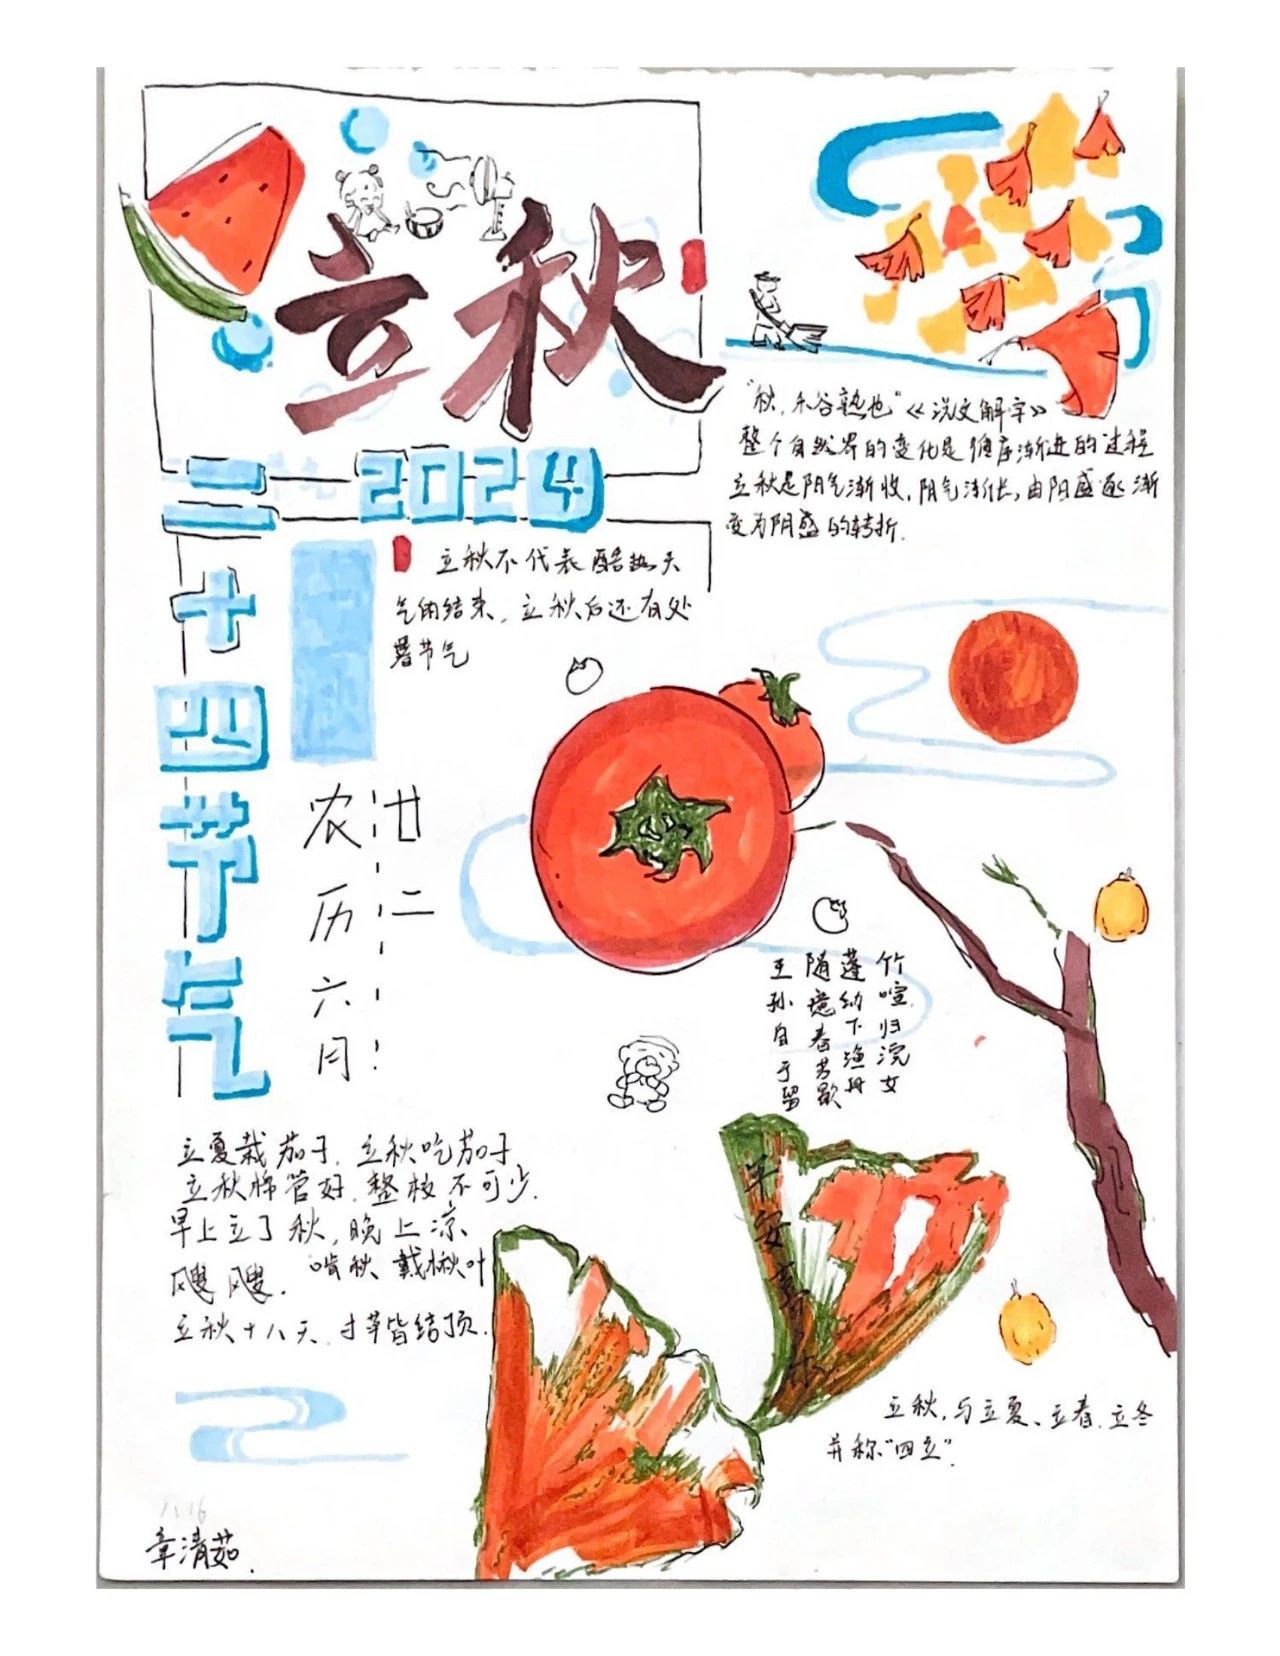 立秋
2024
二十四节气
"秋，禾谷熟也"《说文解字》
整个自然界的变化是循序渐进的过程
立秋是阴气渐收，阴气渐长，由阳盛逐渐
变为阴盛的转折.
立秋不代表酷热天
气的结束，立秋后还有处
暑节气
农历六月
廿二
竹喧归浣女
莲动下渔舟
随意春芳歇
王孙自可留
立夏栽茄子，立秋吃茄子
立秋棉管好，整枝不可少.
早上立了秋，晚上凉
飕飕. 啃秋 戴楸叶
立秋十八天，寸草皆结顶.
平安喜乐
立秋，与立夏、立春、立冬
并称"四立".
1.16
章清茹.